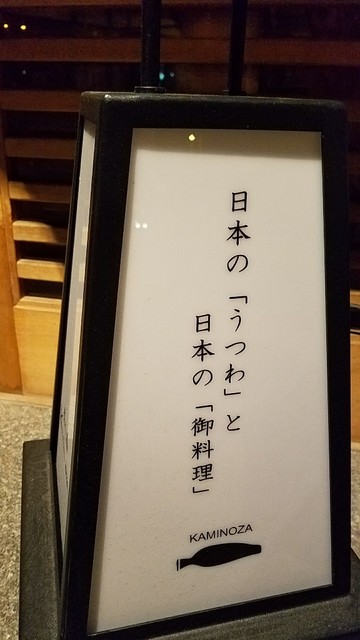 日本の「うつわ」と
日本の「御料理」
KAMINOZA